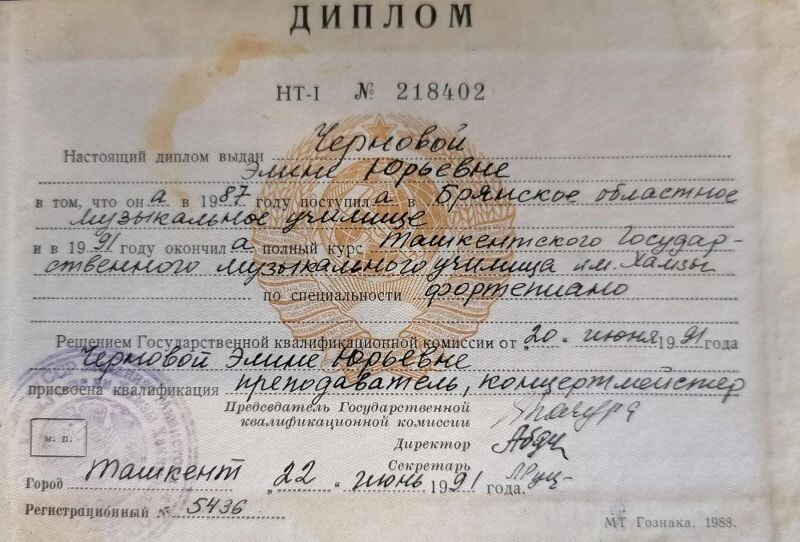 ДИПЛОМ
НТ-I № 218402
Настоящий диплом выдан Черновой
Элине Юрьевне
в том, что он а в 1987 году поступил а в Брянское областное
музыкальное училище
и в 1991 году окончил а полный курс Ташкентского Государ-
ственного музыкального училища им. Хамзы
по специальности фортепиано
Решением Государственной квалификационной комиссии от „20 " июня 1991 года
Черновой Элине Юрьевне
присвоена квалификация преподаватель, концертмейстер
Председатель Государственной
квалификационной комиссии
Директор
Секретарь
М. П.
Город Ташкент „22 " июнь 1991 года.
Регистрационный № 5436
МТ Гознака. 1988.